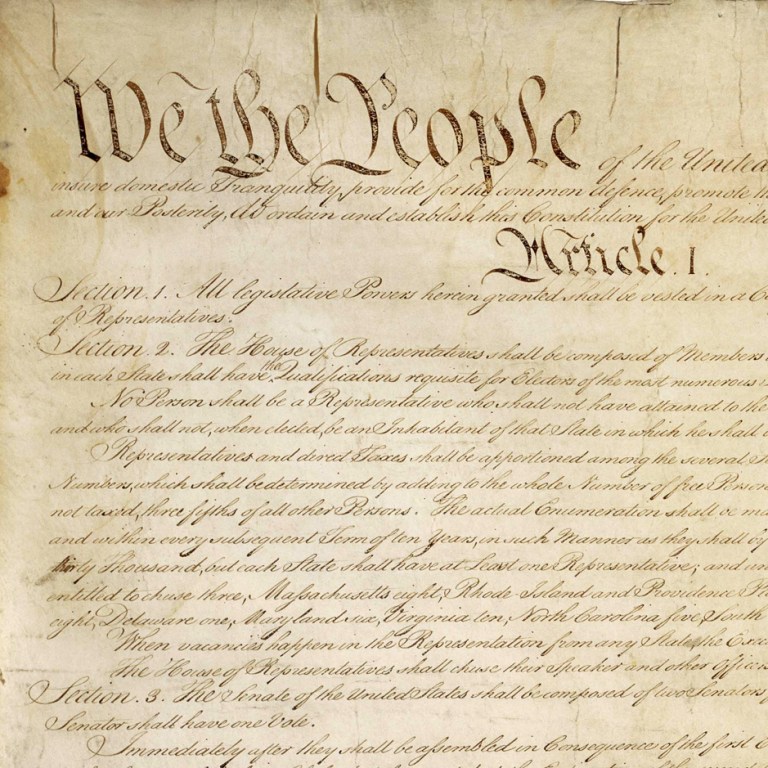 We the People of the United
insure domestic Tranquility, provide for the common defence, promote th
and our Posterity, do ordain and establish this Constitution for the United
Article. I.
Section. 1. All legislative Powers herein granted shall be vested in a Co
of Representatives.
Section. 2. The House of Representatives shall be composed of Members
in each State shall have the Qualifications requisite for Electors of the most numerous
No Person shall be a Representative who shall not have attained to the
and who shall not, when elected, be an Inhabitant of that State in which he shall
Representatives and direct Taxes shall be apportioned among the several
Numbers, which shall be determined by adding to the whole Number of free Person
not taxed, three fifths of all other Persons. The actual Enumeration shall be ma
and within every subsequent Term of ten Years, in such Manner as they shall by
thirty Thousand, but each State shall have at Least one Representative; and un
entitled to chuse three, Massachusetts eight, Rhode-Island and Providence Pl
eight, Delaware one, Maryland six, Virginia ten, North Carolina five, South
When vacancies happen in the Representation from any State, the Exec
The House of Representatives shall chuse their Speaker and other Officers
Section. 3. The Senate of the United States shall be composed of two Senators
Senator shall have one Vote.
Immediately after they shall be assembled in Consequence of the first E